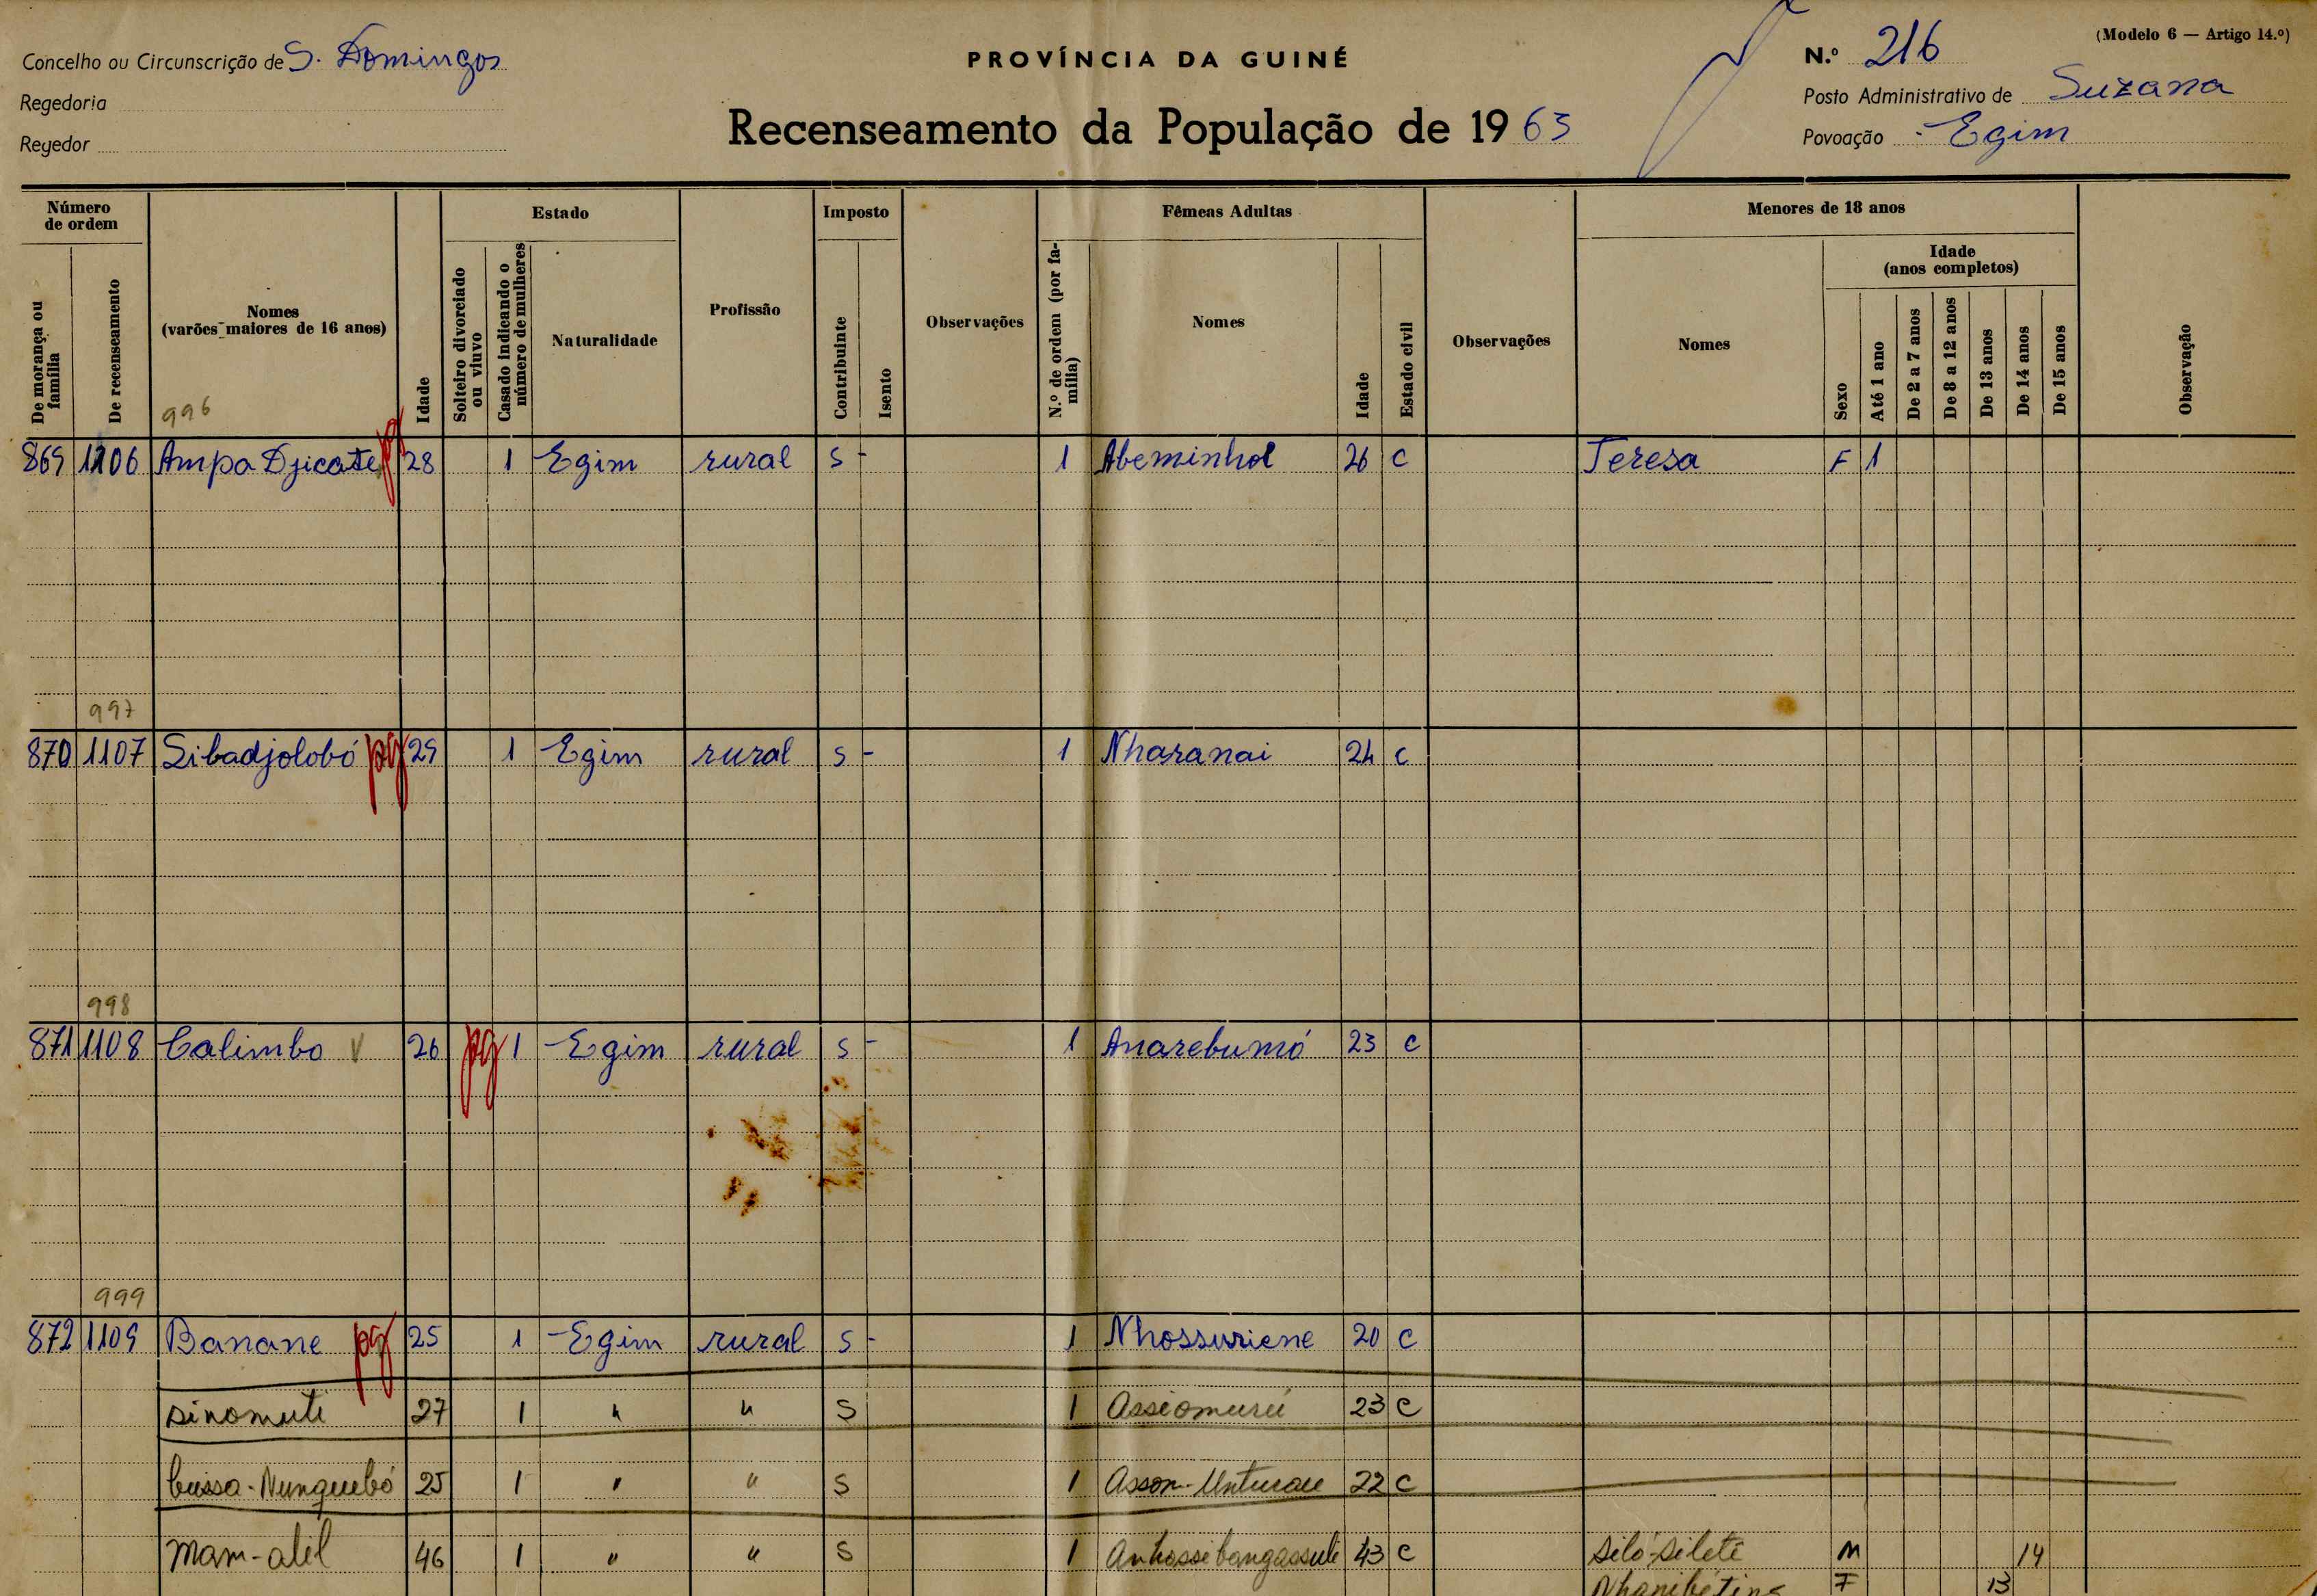 Concelho ou Circunscrição de S. Domingos
Regedoria
Regedor
PROVÍNCIA DA GUINÉ
Recenseamento da População de 1963
(Modelo 6 — Artigo 14.º)
N.º 216
Posto Administrativo de Suzana
Povoação Egim
Número de ordem
De morança ou família
De recenseamento
Nomes
(varões maiores de 16 anos)
996
Idade
Estado
Solteiro divorciado ou viuvo
Casado indicando o número de mulheres
Naturalidade
Profissão
Imposto
Contribuinte
Isento
Observações
Fêmeas Adultas
N.º de ordem (por família)
Nomes
Idade
Estado civil
Observações
Menores de 18 anos
Nomes
Sexo
Idade
(anos completos)
Até 1 ano
De 2 a 7 anos
De 8 a 12 anos
De 13 anos
De 14 anos
De 15 anos
Observação
869 1106 Ampa Djicate pg 28 1 Egim rural S - 1 Abeminhol 26 C Teresa F 1
997
870 1107 Sibadjolobó pg 29 1 Egim rural S - 1 Nharanai 24 C
998
871 1108 Calimbo V 26 pg 1 Egim rural S - 1 Anarebumó 23 C
999
872 1109 Banane pg 25 1 Egim rural S - 1 Nhossuriene 20 C
Sinomute 27 1 " " S 1 Assiomurú 23 C
Nunguebó 25 1 " " S 1 22 C
Mam-alil 46 1 " " S 1 43 C Siló-Sileté M 14
F 13